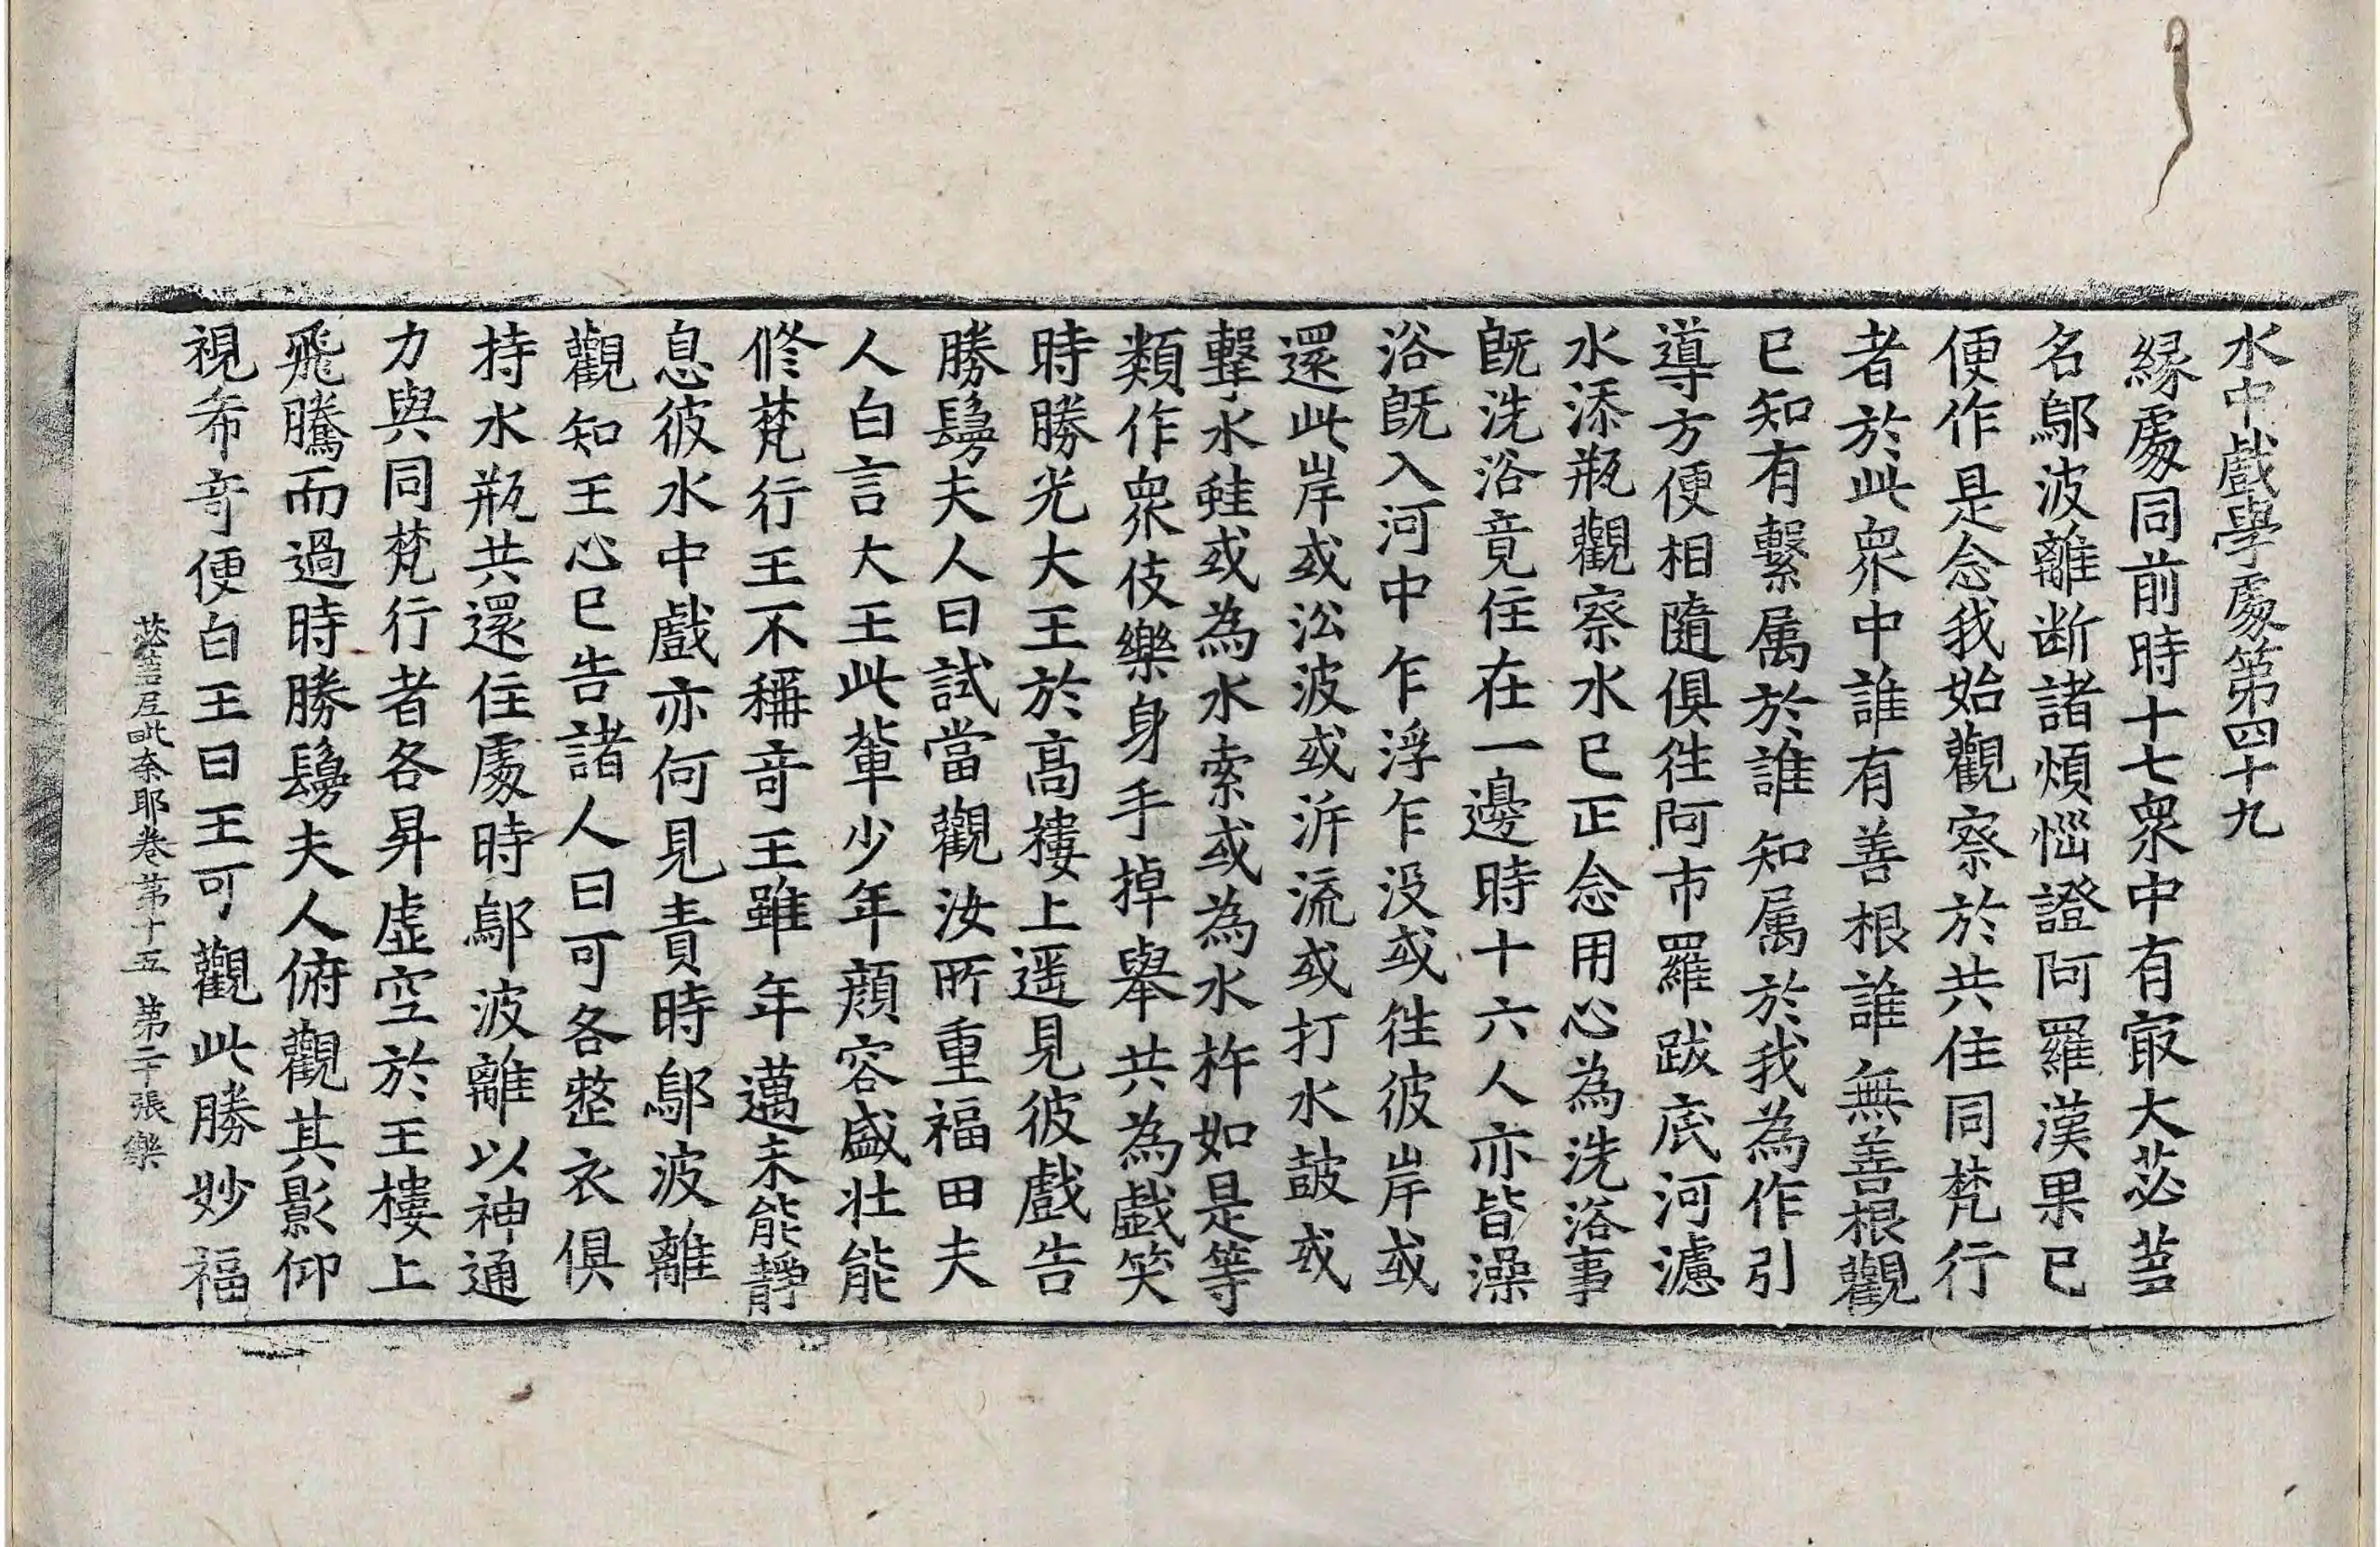 水中戲學處第四十九
緣處同前時十七衆中有㝡大苾芻
名鄔波離断諸煩惱證阿羅漢果已
便作是念我始觀察於共住同梵行
者於此衆中誰有善根誰無善根觀
已知有繫属於誰知属於我為作引
導方便相隨俱往阿市羅跋底河濾
水添瓶觀察水已正念用心為洗浴事
旣洗浴竟住在一邊時十六人亦皆澡
浴旣入河中乍浮乍没或往彼岸或
還此岸或㳂波或泝流或打水皷或
擊水蛙或為水索或為水杵如是等
類作衆伎樂身手掉舉共為戲笑
時勝光大王於高樓上遥見彼戲告
勝鬘夫人曰試當觀汝所重福田夫
人白言大王此輩少年顔容盛壮能
修梵行王不稱竒王雖年邁未能靜
息彼水中戲亦何見責時鄔波離
觀知王心已告諸人曰可各整衣俱
持水瓶共還住處時鄔波離以神通
力與同梵行者各昇虛空於王樓上
飛騰而過時勝鬘夫人俯觀其影仰
視希竒便白王曰王可觀此勝妙福
苾芻尼毗奈耶卷第十五 第二十張 樂